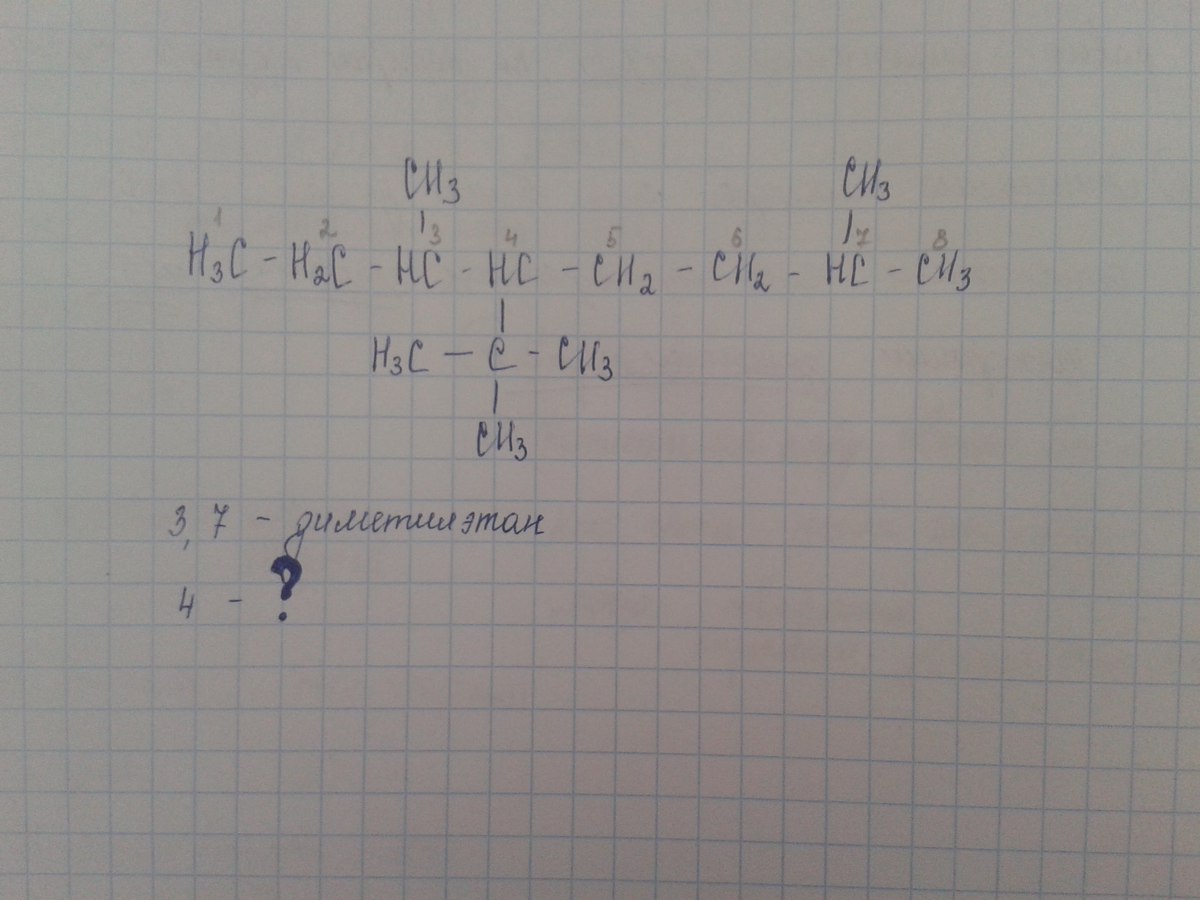 CH3 CH3
1 2 3 4 5 6 7 8
H3C - H2C - HC - HC - CH2 - CH2 - HC - CH3
H3C - C - CH3
CH3
3, 7 - диметилэтан
4 - ?